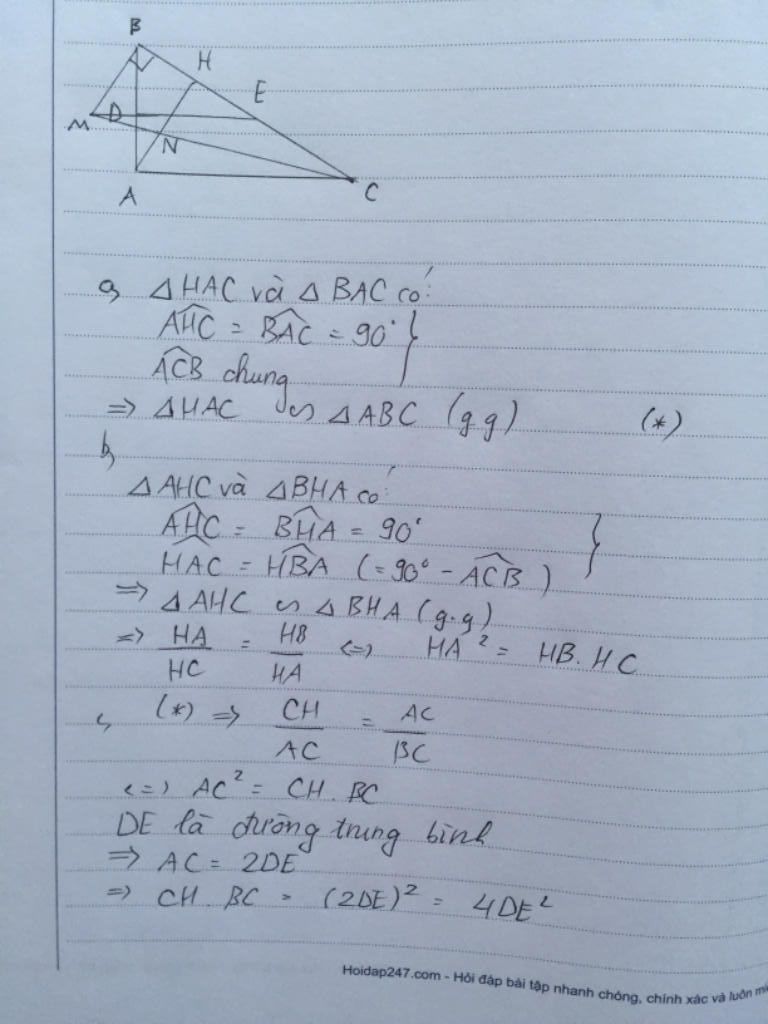 B
H
E
M
D
N
A
C
a, △HAC và △BAC có:
$\widehat{AHC}$ = $\widehat{BAC}$ = 90° }
$\widehat{ACB}$ chung
=> △HAC ∽ △ABC (g.g) (*)
b,
△AHC và △BHA có:
$\widehat{AHC}$ = $\widehat{BHA}$ = 90° }
$\widehat{HAC}$ = $\widehat{HBA}$ (= 90° - $\widehat{ACB}$)
=> △AHC ∽ △BHA (g.g)
=> $\frac{HA}{HC}$ = $\frac{HB}{HA}$ <=> HA² = HB.HC
c, (*) => $\frac{CH}{AC}$ = $\frac{AC}{BC}$
<=> AC² = CH.BC
DE là đường trung bình
=> AC = 2DE
=> CH.BC = (2DE)² = 4DE²
Hoidap247.com - Hỏi đáp bài tập nhanh chóng, chính xác và luôn